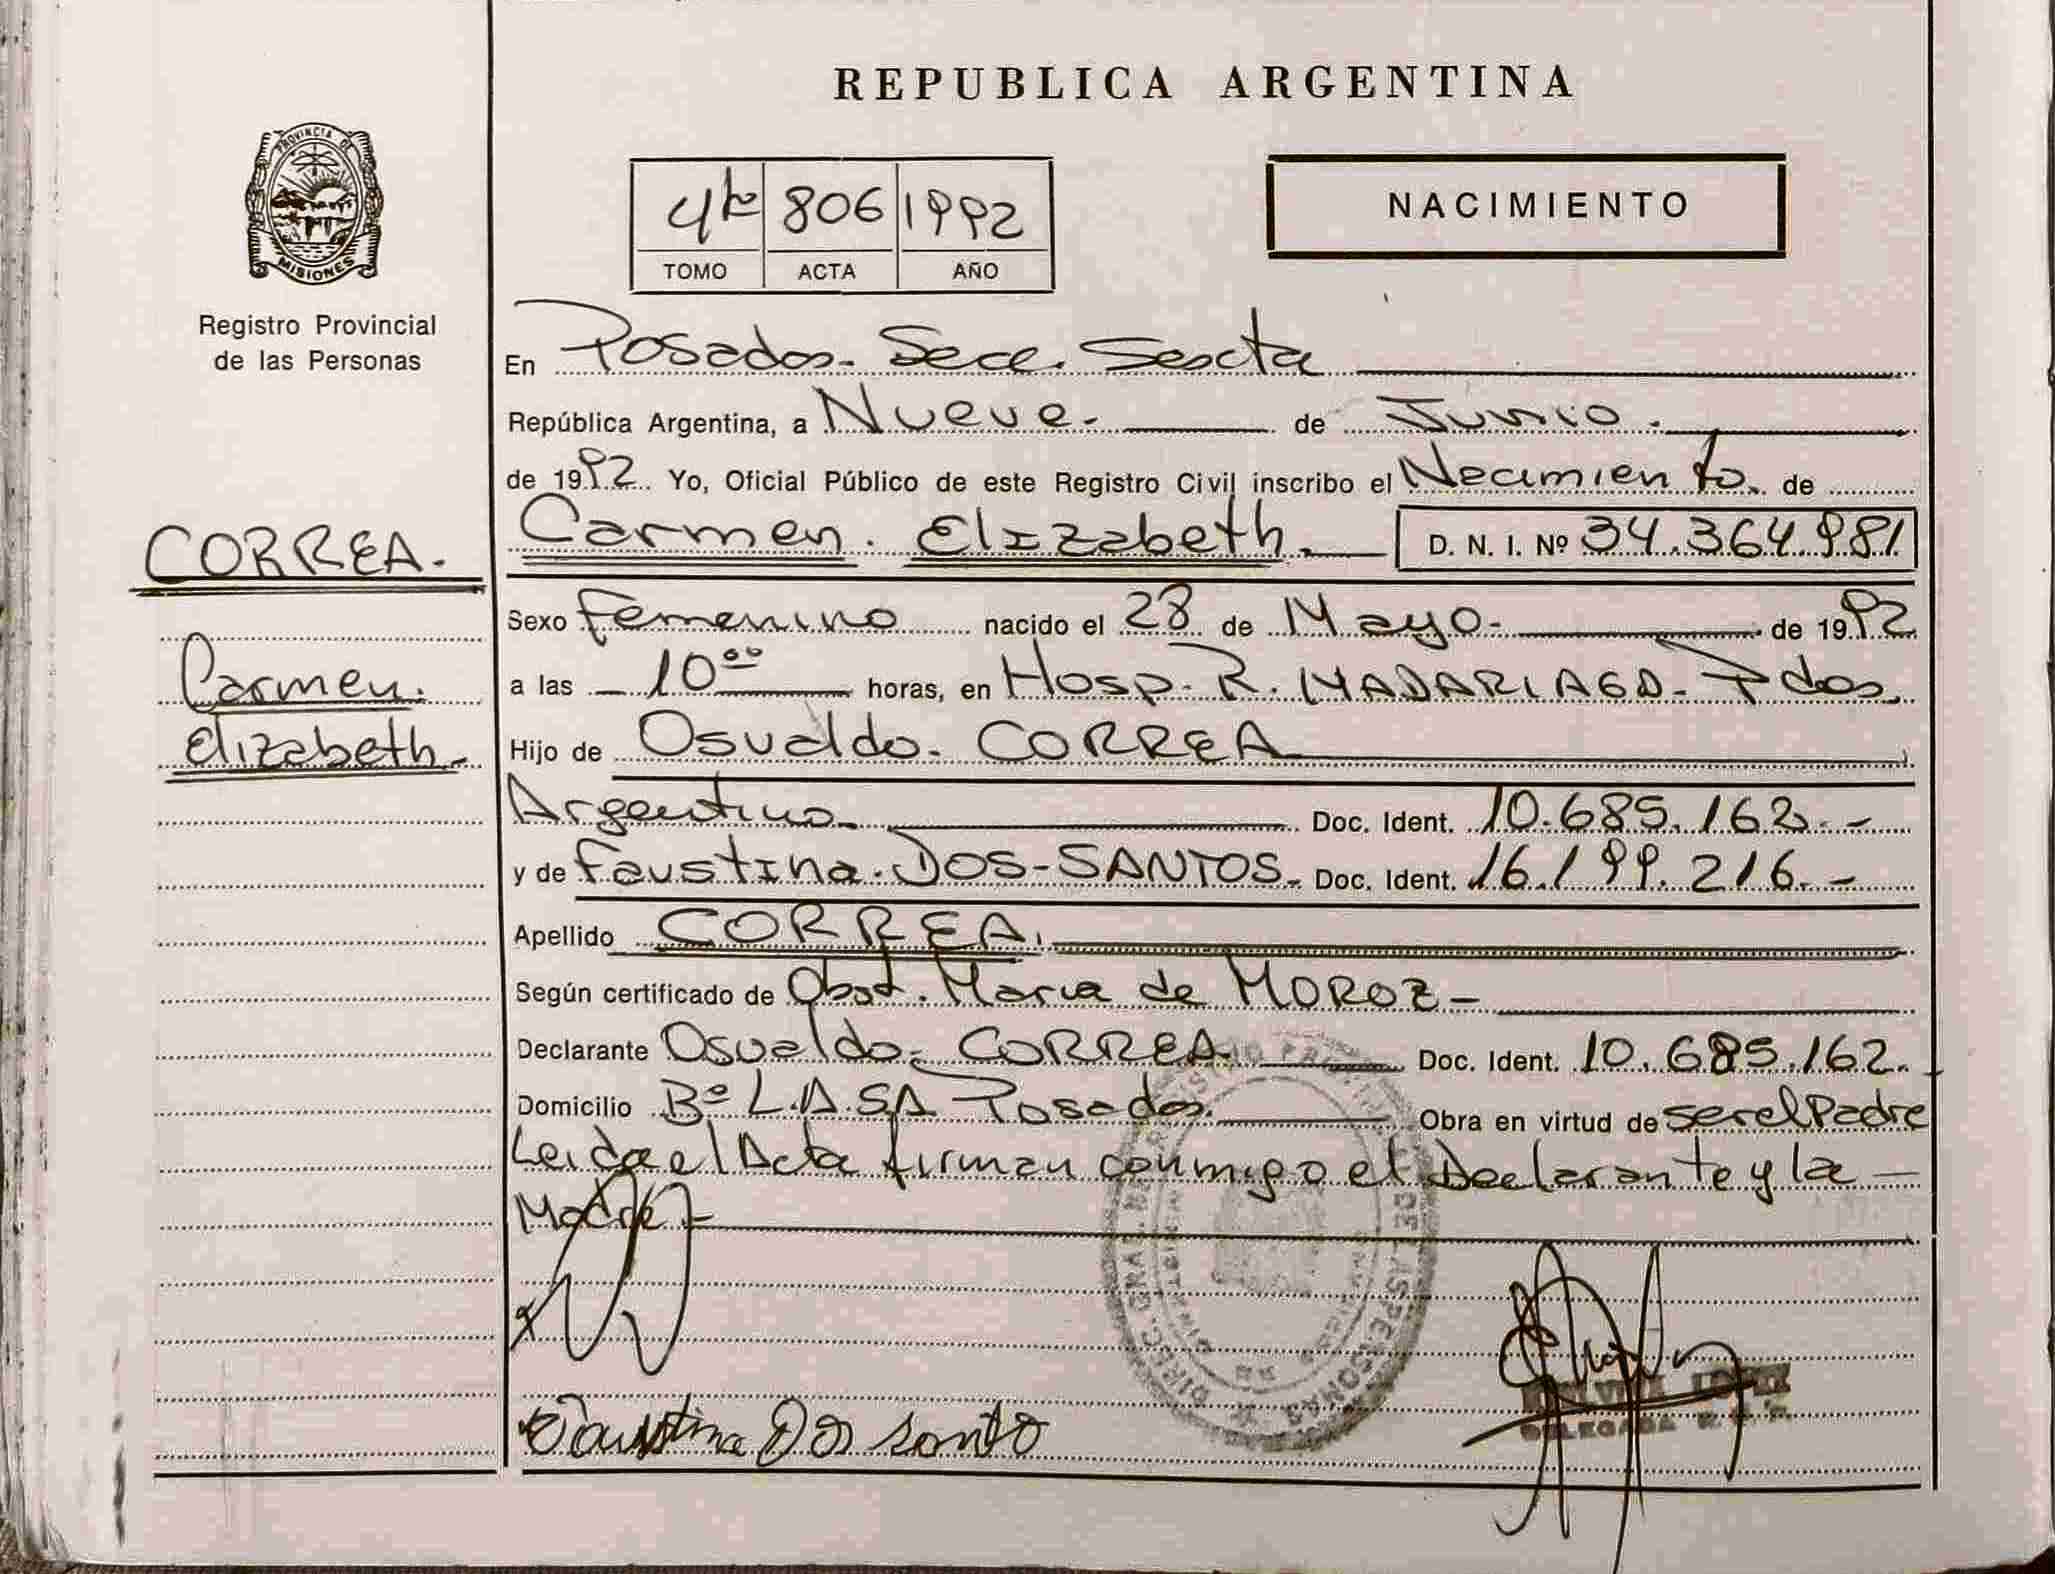 REPUBLICA ARGENTINA
PROVINCIA DE
MISIONES
Registro Provincial
de las Personas
NACIMIENTO
4to 806 1992
TOMO ACTA AÑO
En Posadas. Secc. Sexta
República Argentina, a Nueve. de Junio.
de 1992. Yo, Oficial Público de este Registro Civil inscribo el Nacimiento. de
CORREA.
Carmen. Elizabeth. D. N. I. Nº 34.364.981
Sexo Femenino nacido el 28 de Mayo. de 1992
Carmen.
a las 10 00 horas, en Hosp. R. MADARIAGA. Pdas.
Elizabeth.
Hijo de Osvaldo. CORREA
Argentino. Doc. Ident. 10.685.162.-
y de Faustina. DOS-SANTOS. Doc. Ident. 16.199.216.-
Apellido CORREA.
Según certificado de Obst. Maria de MOROZ-
Declarante Osvaldo. CORREA. Doc. Ident. 10.685.162.
Domicilio Bº L.A.SA Posadas. Obra en virtud de ser el Padre
Leida el Acta firman conmigo el Declarante y la
Madre.-
DE LAS PERSONAS
Faustina Dos santo
DELEGADA